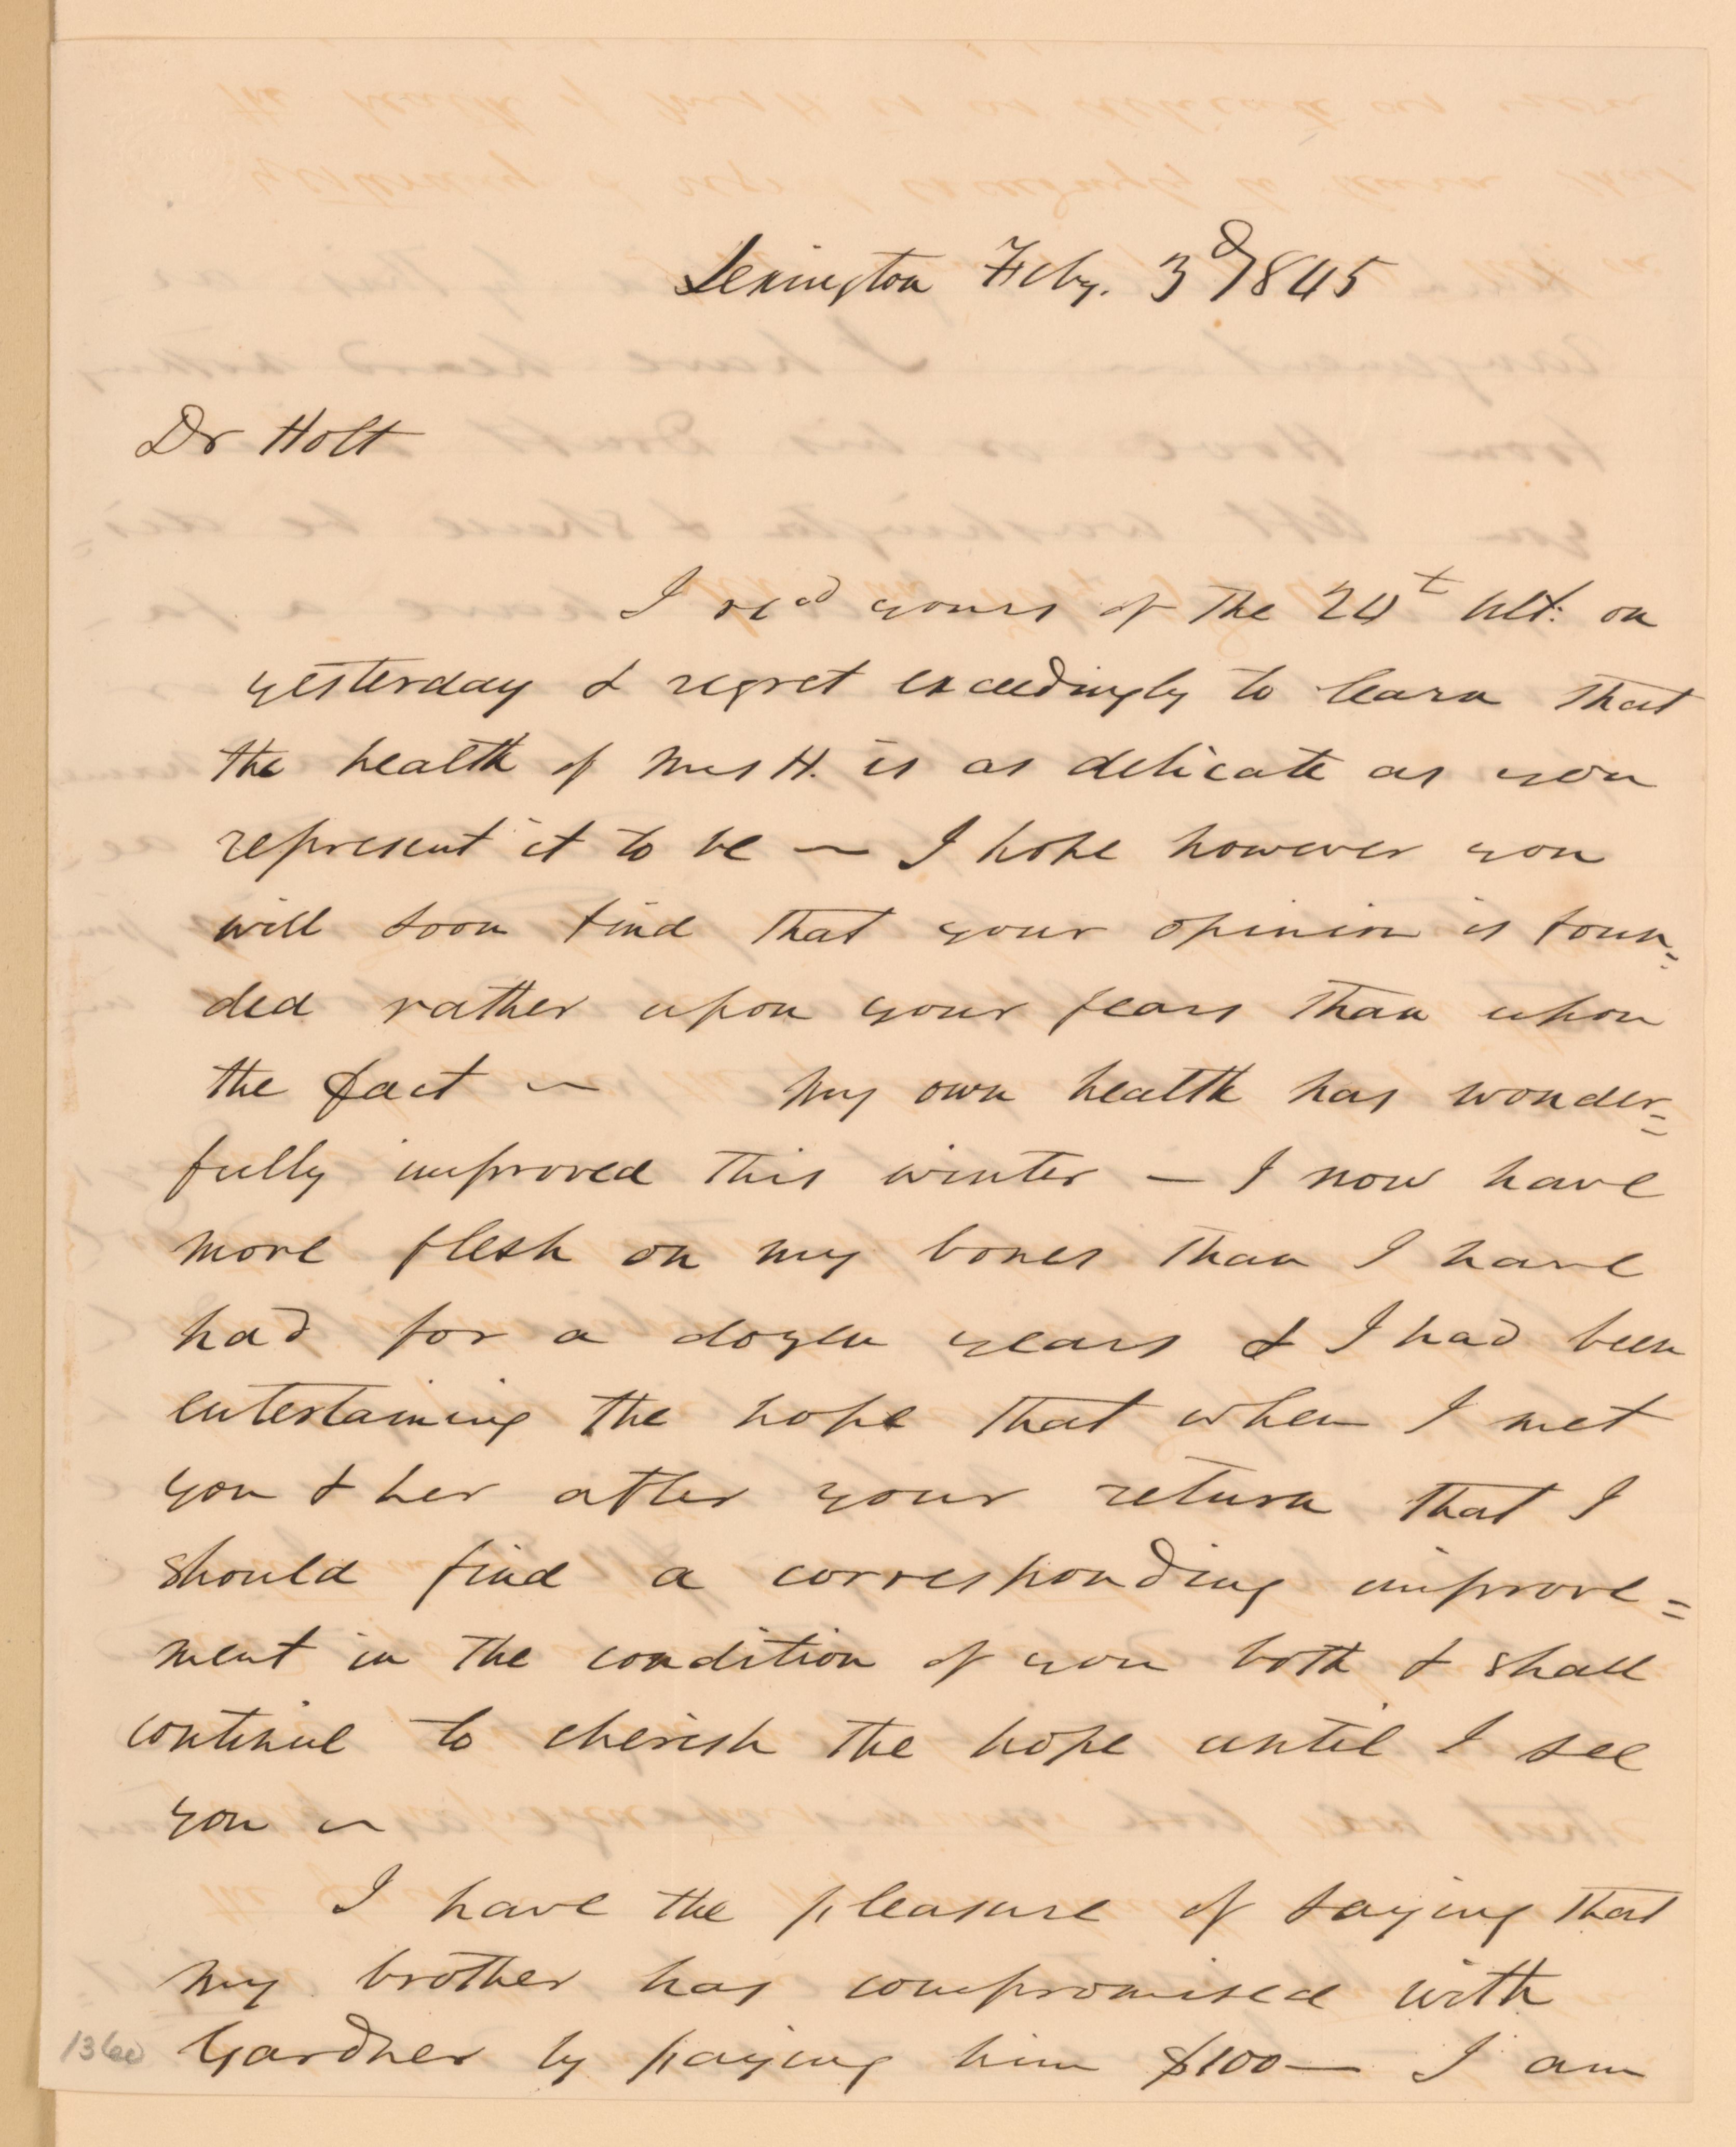 Lexington Feby. 3d 1845
Dr Holt
I recd yours of the 24t ult: on
yesterday & regret exceedingly to learn that
the health of Mrs H. is as delicate as you
represent it to be — I hope however you
will soon find that your opinion is foun=
ded rather upon your fears than upon
the fact — My own health has wonder=
fully improved this winter — I now have
more flesh on my bones than I have
had for a dozen years & I had been
entertaining the hope that when I met
you & her after your return that I
should find a corresponding improve=
ment in the condition of you both & shall
continue to cherish the hope until I see
you —
I have the pleasure of saying that
my brother has compromised with
Gardner by paying him $100— I am
1360